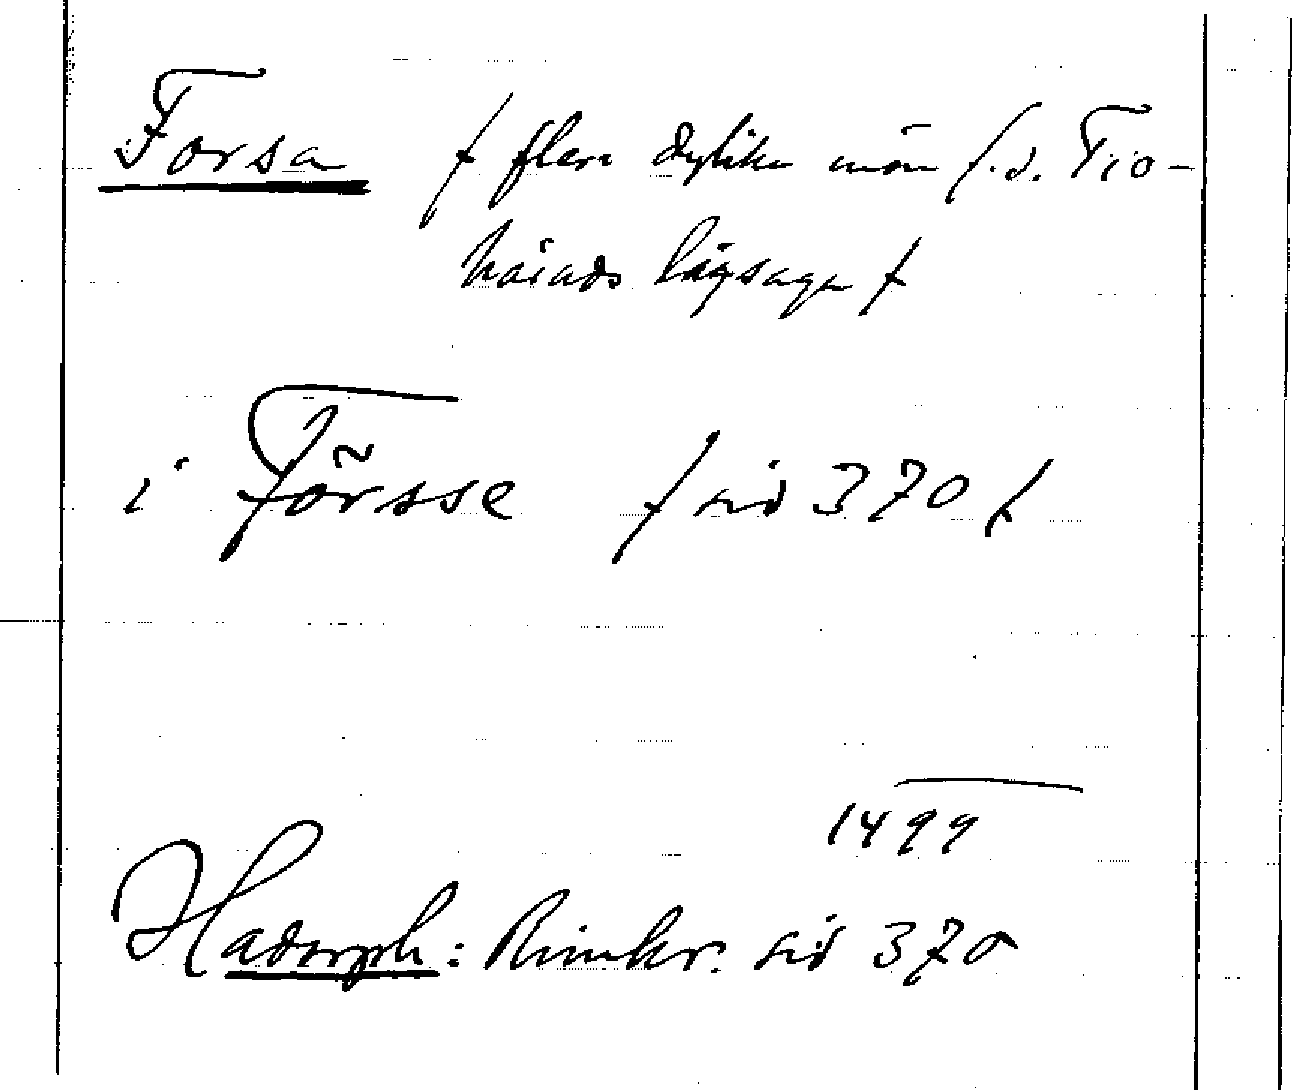 Forsa / flera dylika inom f.d. Tio-
härads lagsaga /
i Försse / sid 370 /
1499
Hadorph: Rimkr. sid 370